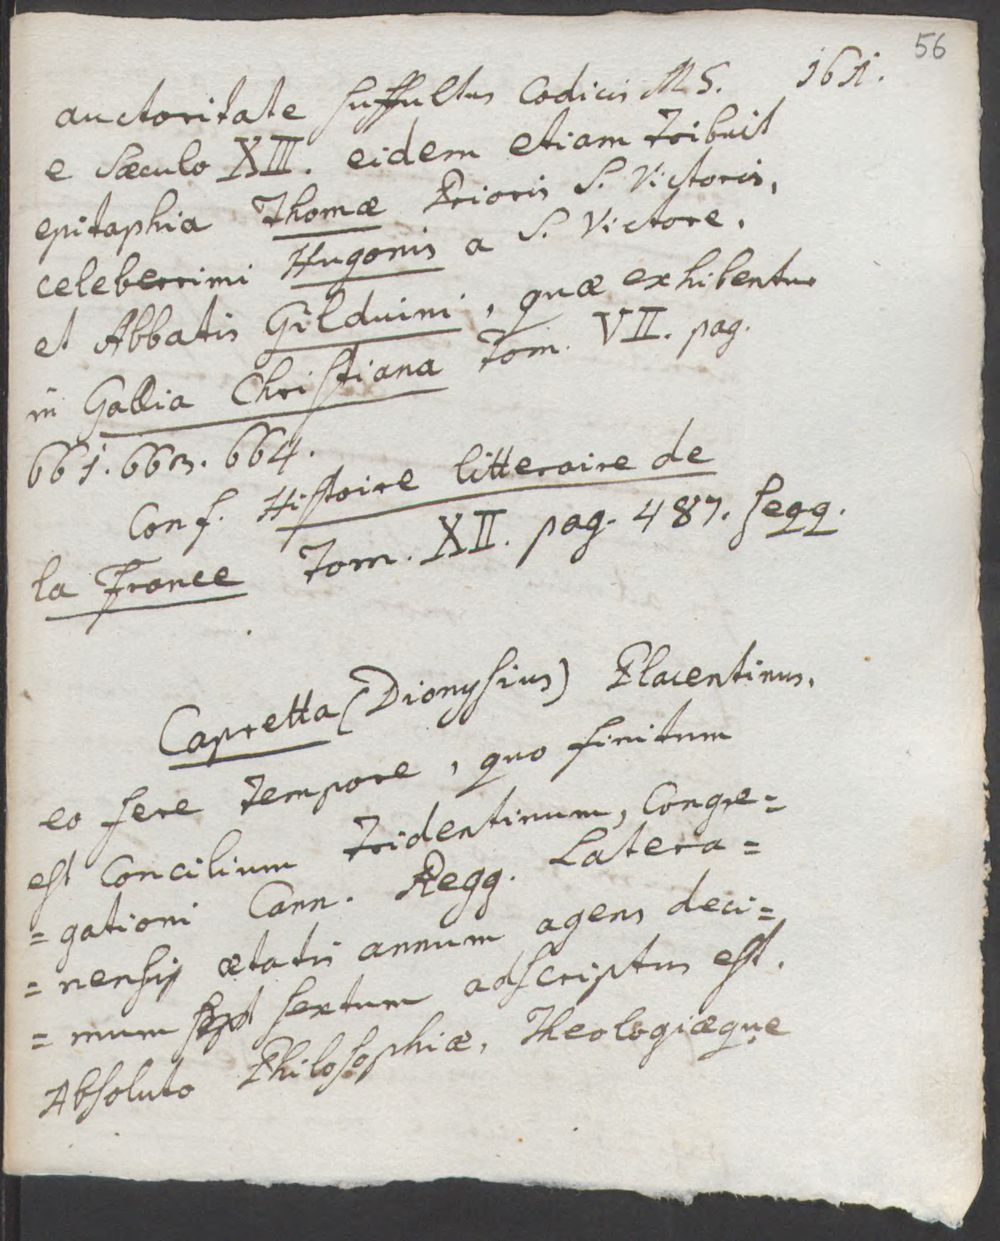 56
161.
auctoritate suffultus Codicis MS.
e Sæculo XIII. eidem etiam tribuit
epitaphia Thomæ Prioris S. Victoris,
celeberrimi Hugonis a S. Victore,
et Abbatis Gilduini, quæ exhibentur
in Gallia Christiana Tom. VII. pag.
661. 663. 664.
Conf. Histoire litteraire de
la France Tom. XII. pag. 487. seqq.
Capretta (Dionysius) Placentinus,
eo fere tempore, quo finitum
est Concilium Tridentinum, Congre=
=gationi Cann. Regg. Latera=
=nensis ætatis annum agens deci=
=mum sept sextum adscriptus est.
Absoluto Philosophiæ, Theologiæque